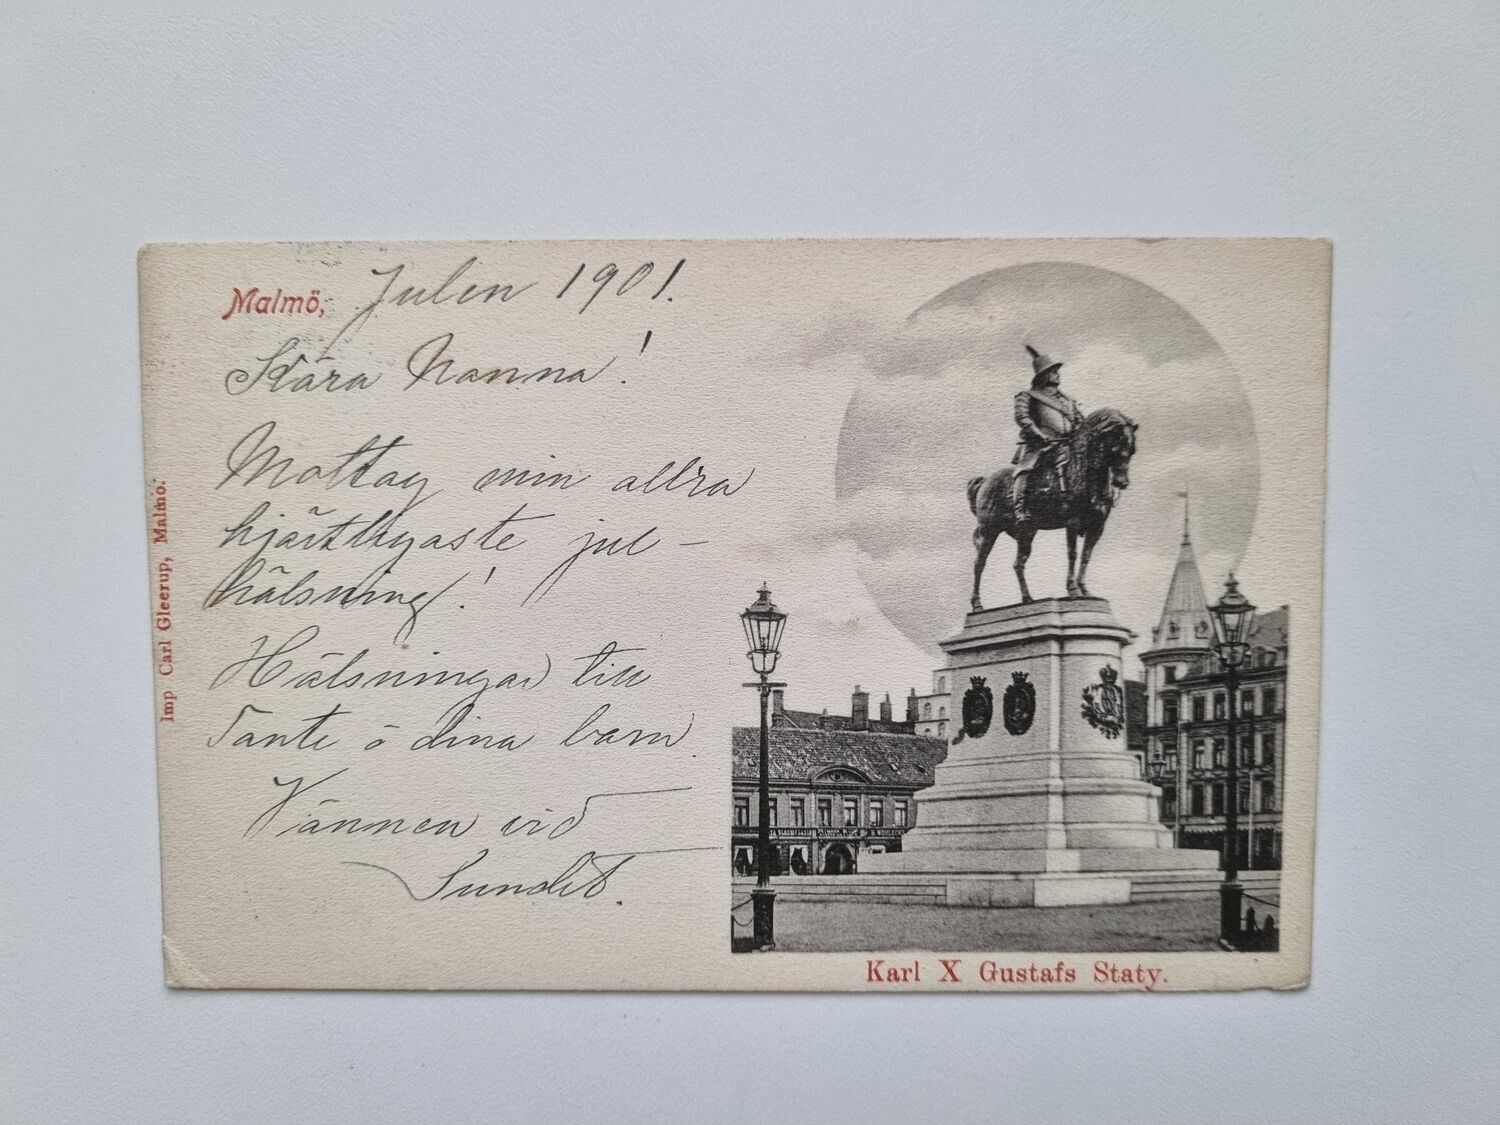 Malmö, Julen 1901.
Kära Nanna!
Mottag min allra
hjärtligaste jul-
hälsning!
Hälsningar till
Tante o dina barn.
Vännen vid
Sundet.
Imp Carl Gleerup, Malmö.
Karl X Gustafs Staty.